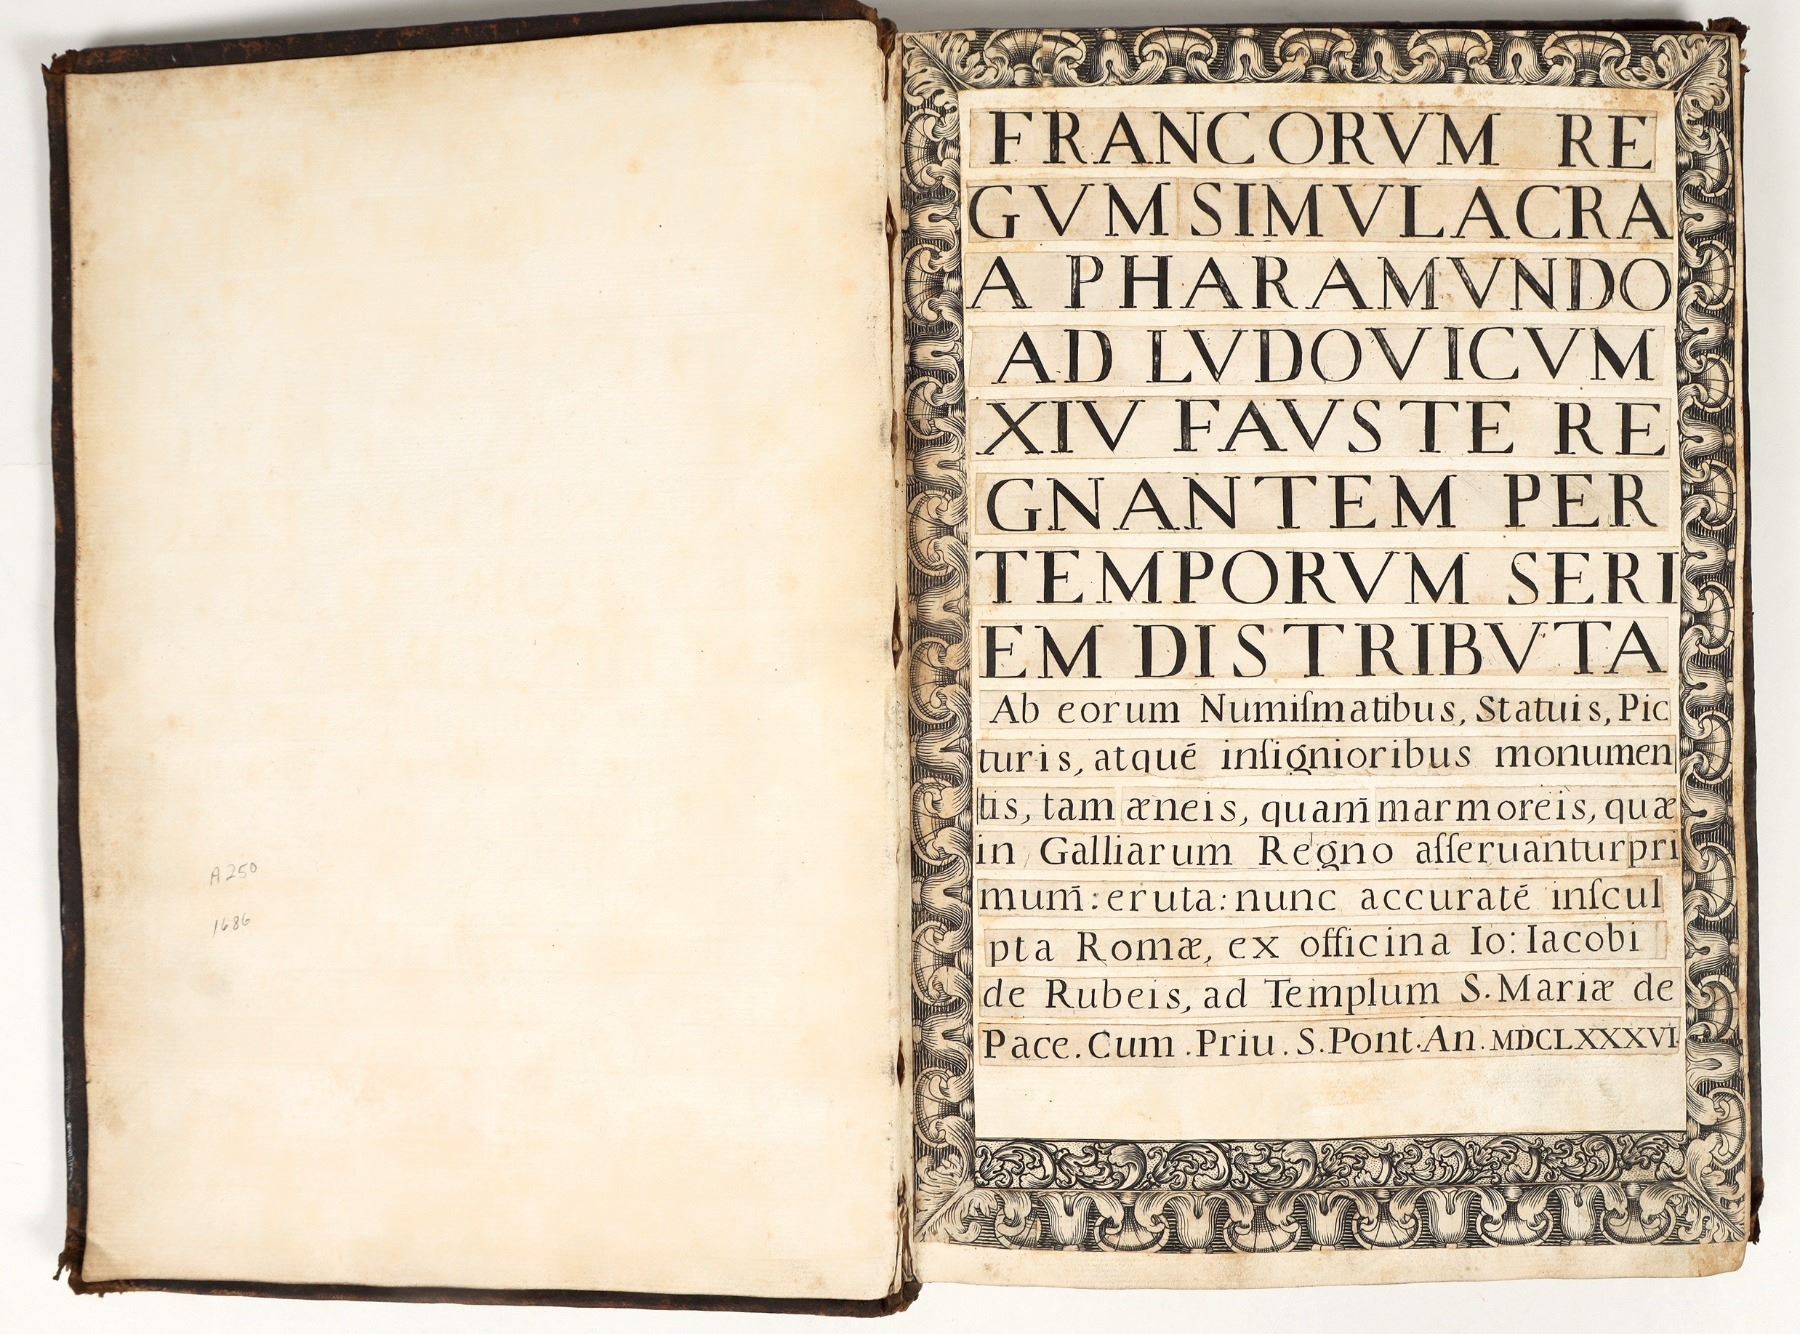 A250
1686
FRANCORVM RE
GVM SIMVLACRA
A PHARAMVNDO
AD LVDOVICVM
XIV FAVSTE RE
GNANTEM PER
TEMPORVM SERI
EM DISTRIBVTA
Ab eorum Numiſmatibus, Statuis, Pic
turis, atquē inſignioribus monumen
tis, tam æneis, quam̄ marmoreis, quæ
in Galliarum Regno aſſeruantur pri
mum̄: eruta: nunc accuratē inſcul
pta Romæ, ex officina Io: Iacobi
de Rubeis, ad Templum S. Mariæ de
Pace. Cum. Priu. S. Pont. An. MDCLXXXVI